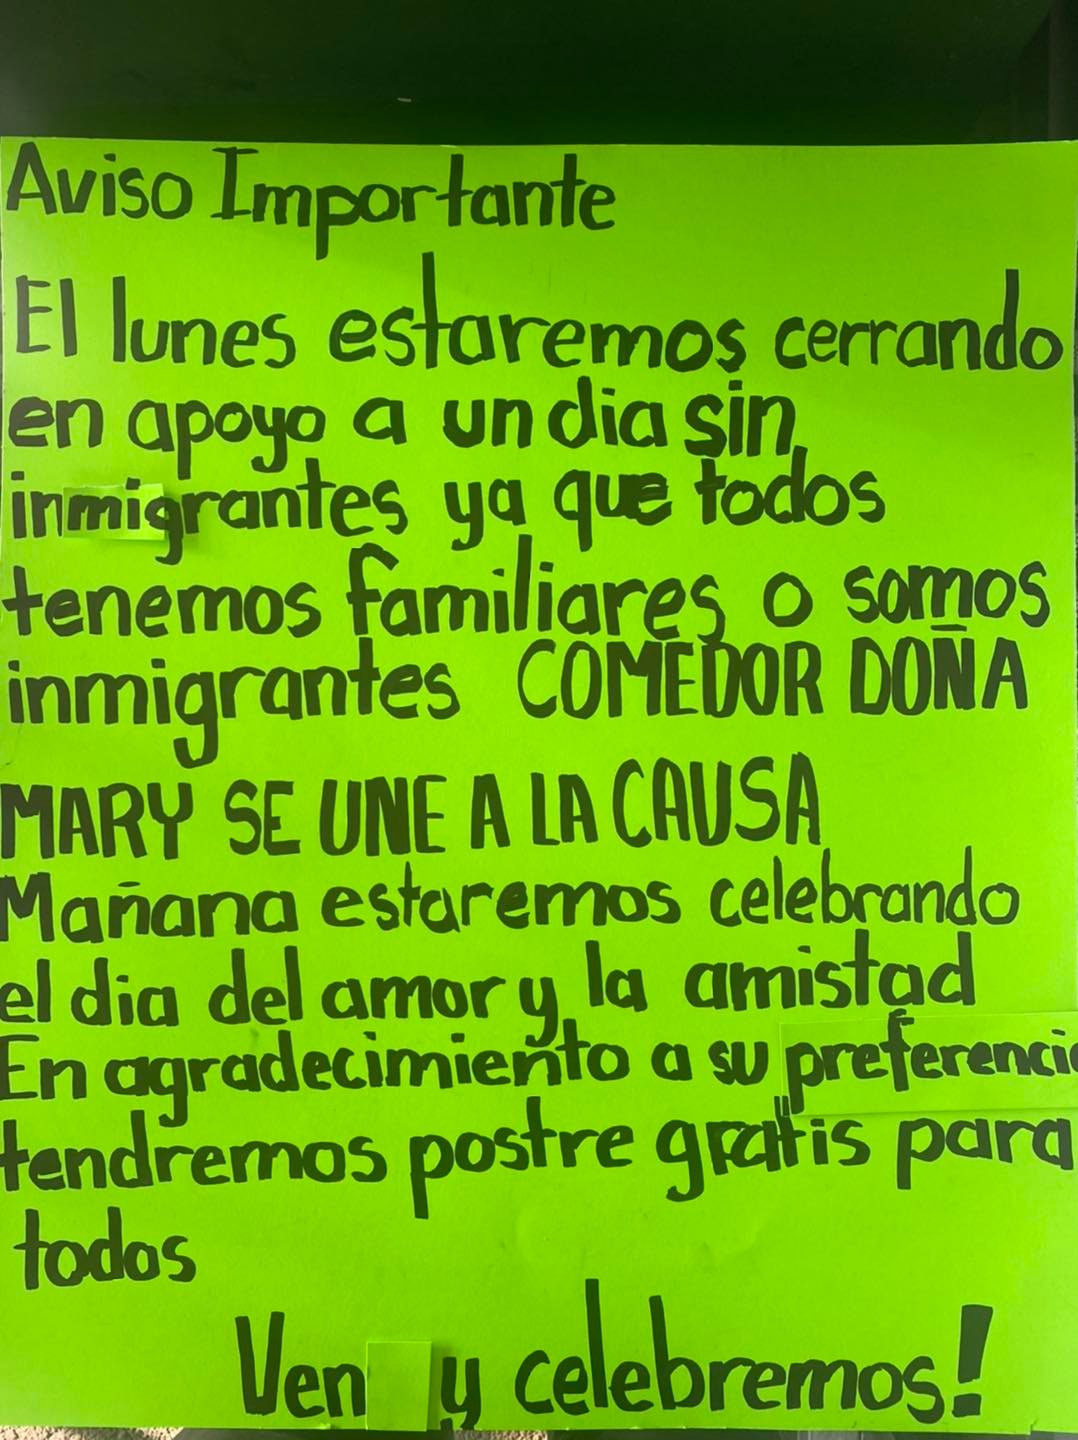 Aviso Importante
El lunes estaremos cerrando
en apoyo a un dia sin
inmigrantes ya que todos
tenemos familiares o somos
inmigrantes COMEDOR DOÑA
MARY SE UNE A LA CAUSA
Mañana estaremos celebrando
el dia del amor y la amistad
En agradecimiento a su preferencia
tendremos postre gratis para
todos
Ven y celebremos!